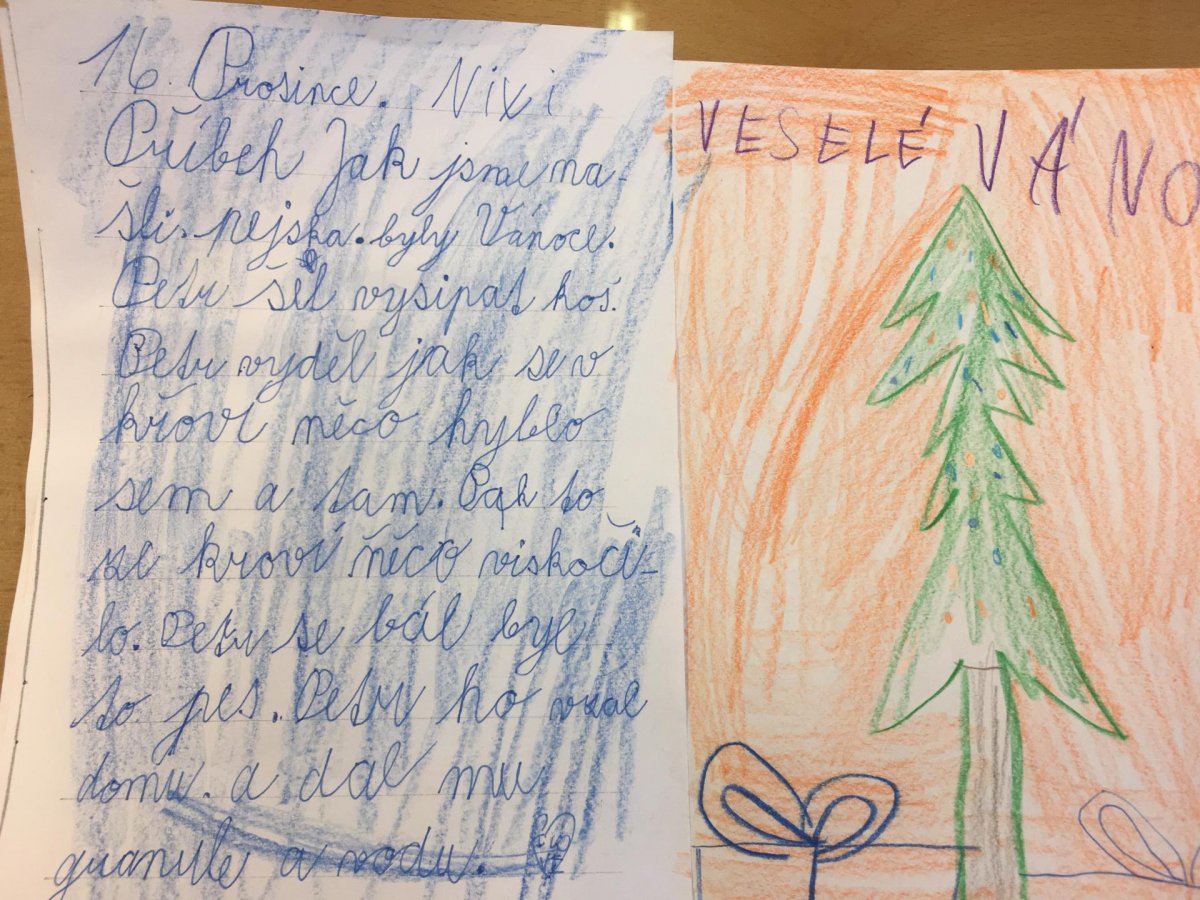 16. Prosince. Nixi
Příbeh Jak jsme na-
šli. pejska. byly Vánoce.
Petr šel vysipat koš.
Petr vyděl jak se v
křoví něco hyblo
sem a tam. Pak to
ze kroví něco viskoči-
lo. Petr se bál byl
to pes. Petr ho vzal
domu. a dal mu
granule a vodu.
VESELÉ VÁNO